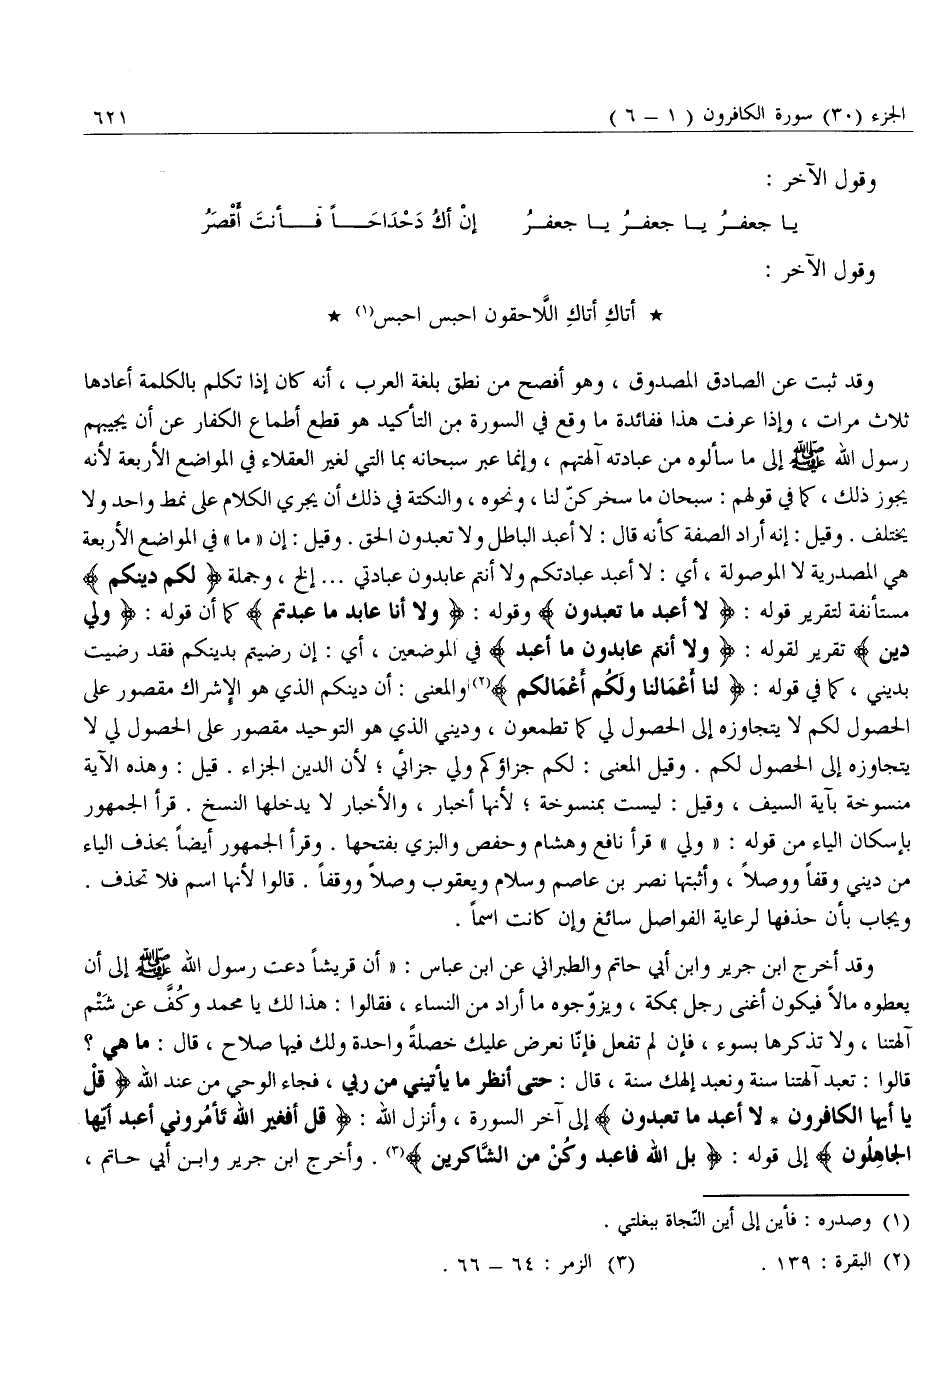 الجزء (٣٠) سورة الكافرون ( ١ – ٦ ) ٦٢١
وقول الآخر :
يـا جعفـرُ يـا جعفـرُ يـا جعفـرُ إنْ أكُ دَحْدَاحَـــاً فـأنتَ أَقْصَرُ
وقول الآخر :
★ أتاكِ أتاكِ اللَّاحقون احبس احبس(١) ★
وقد ثبت عن الصادق المصدوق ، وهو أفصح من نطق بلغة العرب ، أنه كان إذا تكلم بالكلمة أعادها
ثلاث مرات ، وإذا عرفت هذا ففائدة ما وقع في السورة مِن التأكيد هو قطع أطماع الكفار عن أن يجيبهم
رسول الله ﷺ إلى ما سألوه من عبادته آلهتهم ، وإنما عبر سبحانه بما التي لغير العقلاء في المواضع الأربعة لأنه
يجوز ذلك ، كما في قولهم : سبحان ما سخركنّ لنا ، ونحوه ، والنكتة في ذلك أن يجري الكلام على نمط واحد ولا
يختلف . وقيل : إنه أراد الصفة كأنه قال : لا أعبد الباطل ولا تعبدون الحق . وقيل : إن « ما » في المواضع الأربعة
هي المصدرية لا الموصولة ، أي : لا أعبد عبادتكم ولا أنتم عابدون عبادتي ... إلخ ، وجملة ﴿ لكم دينكم ﴾
مستأنفة لتقرير قوله : ﴿ لا أعبد ما تعبدون ﴾ وقوله : ﴿ ولا أنا عابد ما عبدتم ﴾ كما أن قوله : ﴿ ولي
دين ﴾ تقرير لقوله : ﴿ ولا أنتم عابدون ما أعبد ﴾ في الموضعين ، أي : إن رضيتم بدينكم فقد رضيت
بديني ، كما في قوله : ﴿ لنا أَعْمَالنا ولَكُم أَعْمَالكم ﴾(٢) والمعنى : أن دينكم الذي هو الإشراك مقصور على
الحصول لكم لا يتجاوزه إلى الحصول لي كما تطمعون ، وديني الذي هو التوحيد مقصور على الحصول لي لا
يتجاوزه إلى الحصول لكم . وقيل المعنى : لكم جزاؤكم ولي جزائي ؛ لأن الدين الجزاء . قيل : وهذه الآية
منسوخة بآية السيف ، وقيل : ليست بمنسوخة ؛ لأنها أخبار ، والأخبار لا يدخلها النسخ . قرأ الجمهور
بإسكان الياء من قوله : « ولي » قرأ نافع وهشام وحفص والبزي بفتحها . وقرأ الجمهور أيضاً بحذف الياء
من ديني وقفاً ووصلاً ، وأثبتها نصر بن عاصم وسلام ويعقوب وصلاً ووقفاً . قالوا لأنها اسم فلا تحذف .
ويجاب بأن حذفها لرعاية الفواصل سائغ وإن كانت اسماً .
وقد أخرج ابن جرير وابن أبي حاتم والطبراني عن ابن عباس : « أن قريشاً دعت رسول الله ﷺ إلى أن
يعطوه مالاً فيكون أغنى رجل بمكة ، ويزوّجوه ما أراد من النساء ، فقالوا : هذا لك يا محمد وكُفَّ عن شَتْم
آلهتنا ، ولا تذكرها بسوء ، فإن لم تفعل فإنّا نعرض عليك خصلةً واحدة ولك فيها صلاح ، قال : ما هي ؟
قالوا : تعبد آلهتنا سنة ونعبد إلهك سنة ، قال : حتى أنظر ما يأتيني من ربي ، فجاء الوحي من عند الله ﴿ قُلْ
يا أيها الكافرون * لا أعبد ما تعبدون ﴾ إلى آخر السورة ، وأنزل الله : ﴿ قل أفغير الله تَأمُروني أعبد أيّها
الجاهِلُون ﴾ إلى قوله : ﴿ بل الله فاعبد وكُنْ من الشَّاكرين ﴾(٣) . وأخرج ابن جرير وابـن أبي حـاتم ،
(١) وصدره : فأين إلى أين النّجاة ببغلتي .
(٢) البقرة : ١٣٩ . (٣) الزمر : ٦٤ – ٦٦ .